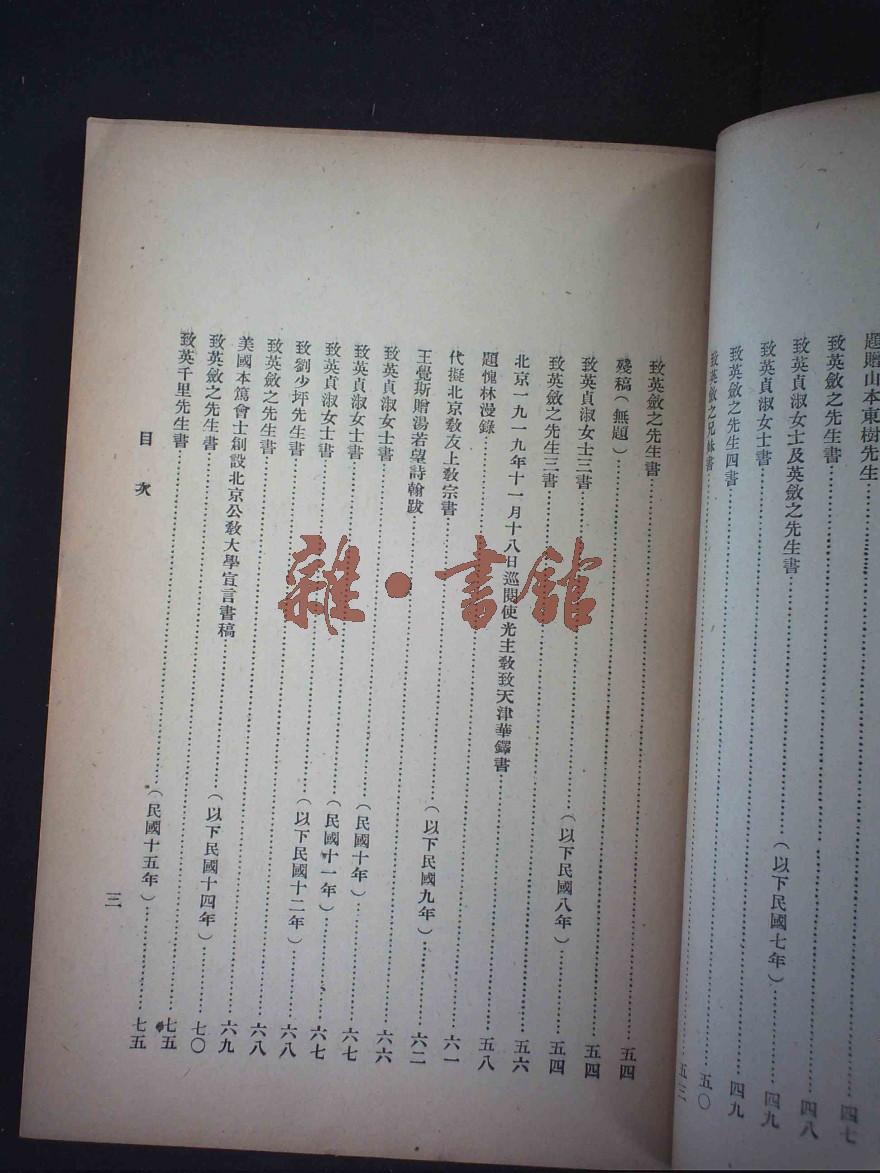 題贈山本東樹先生……四七
致英斂之先生書……四八
致英貞淑女士及英斂之先生書……（以下民國七年）……四九
致英貞淑女士書……四九
致英斂之先生四書……五〇
致英斂之兄妹書……五三
致英斂之先生書……五四
殘稿（無題）……五四
致英貞淑女士三書……（以下民國八年）……五四
致英斂之先生三書……五六
北京一九一九年十一月十八日巡閱使光主敎致天津華鐸書……五八
題愧林漫錄……六一
代擬北京敎友上敎宗書……（以下民國九年）……六二
王覺斯贈湯若望詩翰跋……六六
致英貞淑女士書……（民國十年）……六七
致英貞淑女士書……（民國十一年）……六七
致英貞淑女士書……（以下民國十二年）……六八
致劉少坪先生書……六八
致英斂之先生書……六九
美國本篤會士創設北京公敎大學宣言書稿……（以下民國十四年）……七〇
致英斂之先生書……七五
致英千里先生書……（民國十五年）……七五
目次
三
雜·書館